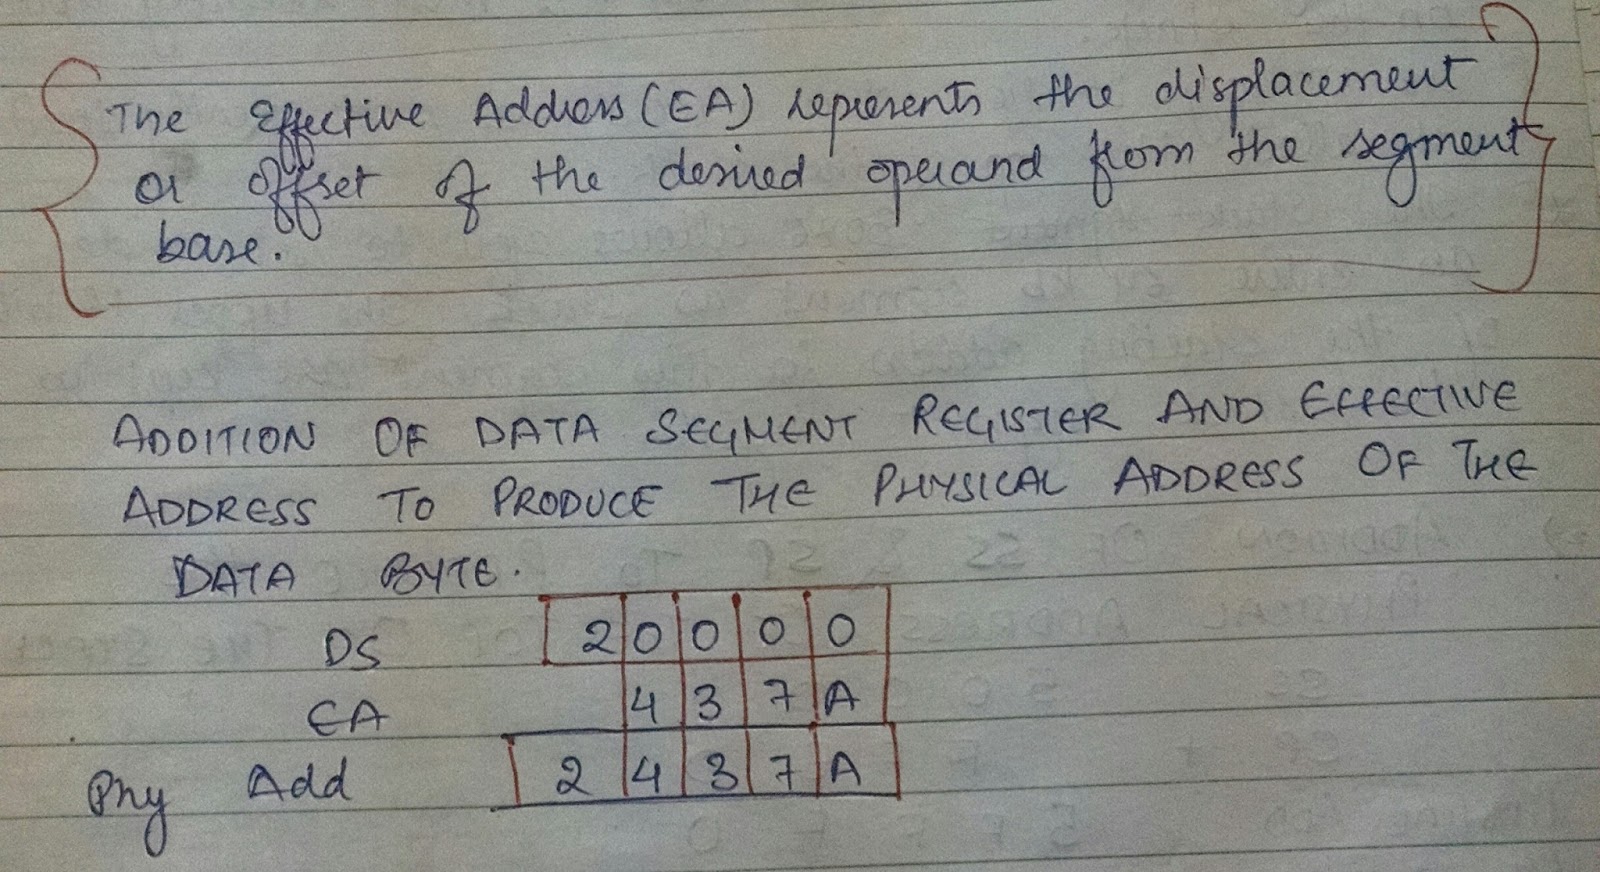 The Effective Address (EA) represents the displacement
or offset of the desired operand from the segment
base.
ADDITION OF DATA SEGMENT REGISTER AND EFFECTIVE
ADDRESS TO PRODUCE THE PHYSICAL ADDRESS OF THE
DATA BYTE.
DS 2 0 0 0 0
EA 4 3 7 A
Phy Add 2 4 3 7 A